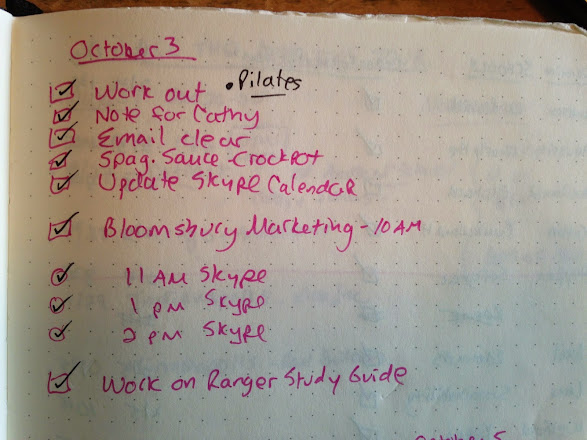 October 3
Work out . Pilates
Note for Cathy
Email clear
Spag. Sauce - Crockpot
Update Skype Calendar
Bloomsbury Marketing - 10 AM
11 AM Skype
1 pm Skype
2 pm Skype
Work on Ranger Study Guide
October 5